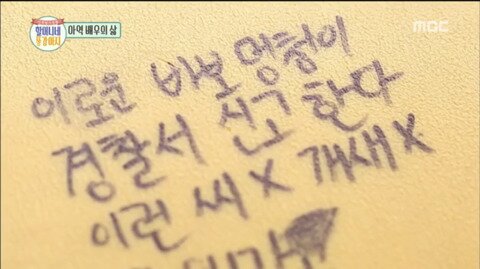 할머니네 똥강아지
아역 배우의 삶
MBC
이로운 바보 멍청이
경찰서 신고 한다
이런 씨X 개새X